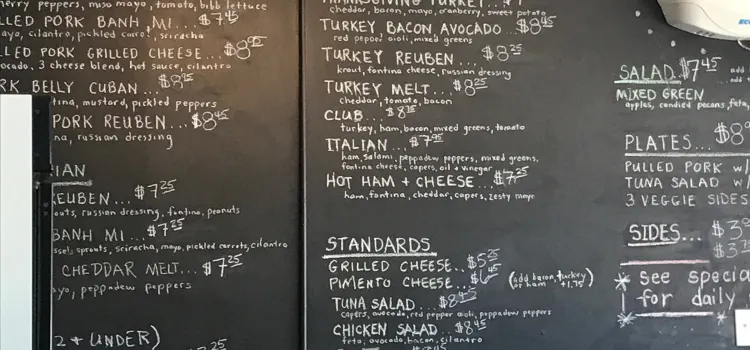 cherry peppers, miso mayo, tomato, bibb lettuce
LLED PORK BANH MI... $7.45
ayo, cilantro, pickled carrot, sriracha
LLED PORK GRILLED CHEESE... $8.95
ocado, 3 cheese blend, hot sauce, cilantro
RK BELLY CUBAN... $8.95
tina, mustard, pickled peppers
PORK REUBEN... $8.45
na, russian dressing
IAN
EUBEN... $7.25
outs, russian dressing, fontina, peanuts
BANH MI... $7.25
ssels sprouts, sriracha, mayo, pickled carrots, cilantro
CHEDDAR MELT... $7.25
ayo, peppadew peppers
2 + UNDER)
THANKSGIVING TURKEY...
cheddar, bacon, mayo, cranberry, sweet potato
TURKEY BACON AVOCADO... $8.45
red pepper aioli, mixed greens
TURKEY REUBEN... $8.25
kraut, fontina cheese, russian dressing
TURKEY MELT... $8.25
cheddar, tomato, bacon
CLUB...
turkey, ham, bacon, mixed greens, tomato
ITALIAN... $7.95
ham, salami, peppadew peppers, mixed greens,
fontina cheese, capers, oil + vinegar
HOT HAM + CHEESE... $7.25
ham, fontina, cheddar, capers, zesty mayo
STANDARDS
GRILLED CHEESE... $5.25
PIMENTO CHEESE... $6.45 (add bacon, turkey or ham +1.75)
TUNA SALAD... $8.45
capers, avocado, red pepper aioli, peppadew peppers
CHICKEN SALAD... $8.45
feta, avocado, bacon, cilantro
SALAD $7.45
add
MIXED GREEN
apples, candied pecans, feta,
PLATES... $8
PULLED PORK w/
TUNA SALAD w/
3 VEGGIE SIDES
SIDES... $3
$3
* see specia
! for daily
*